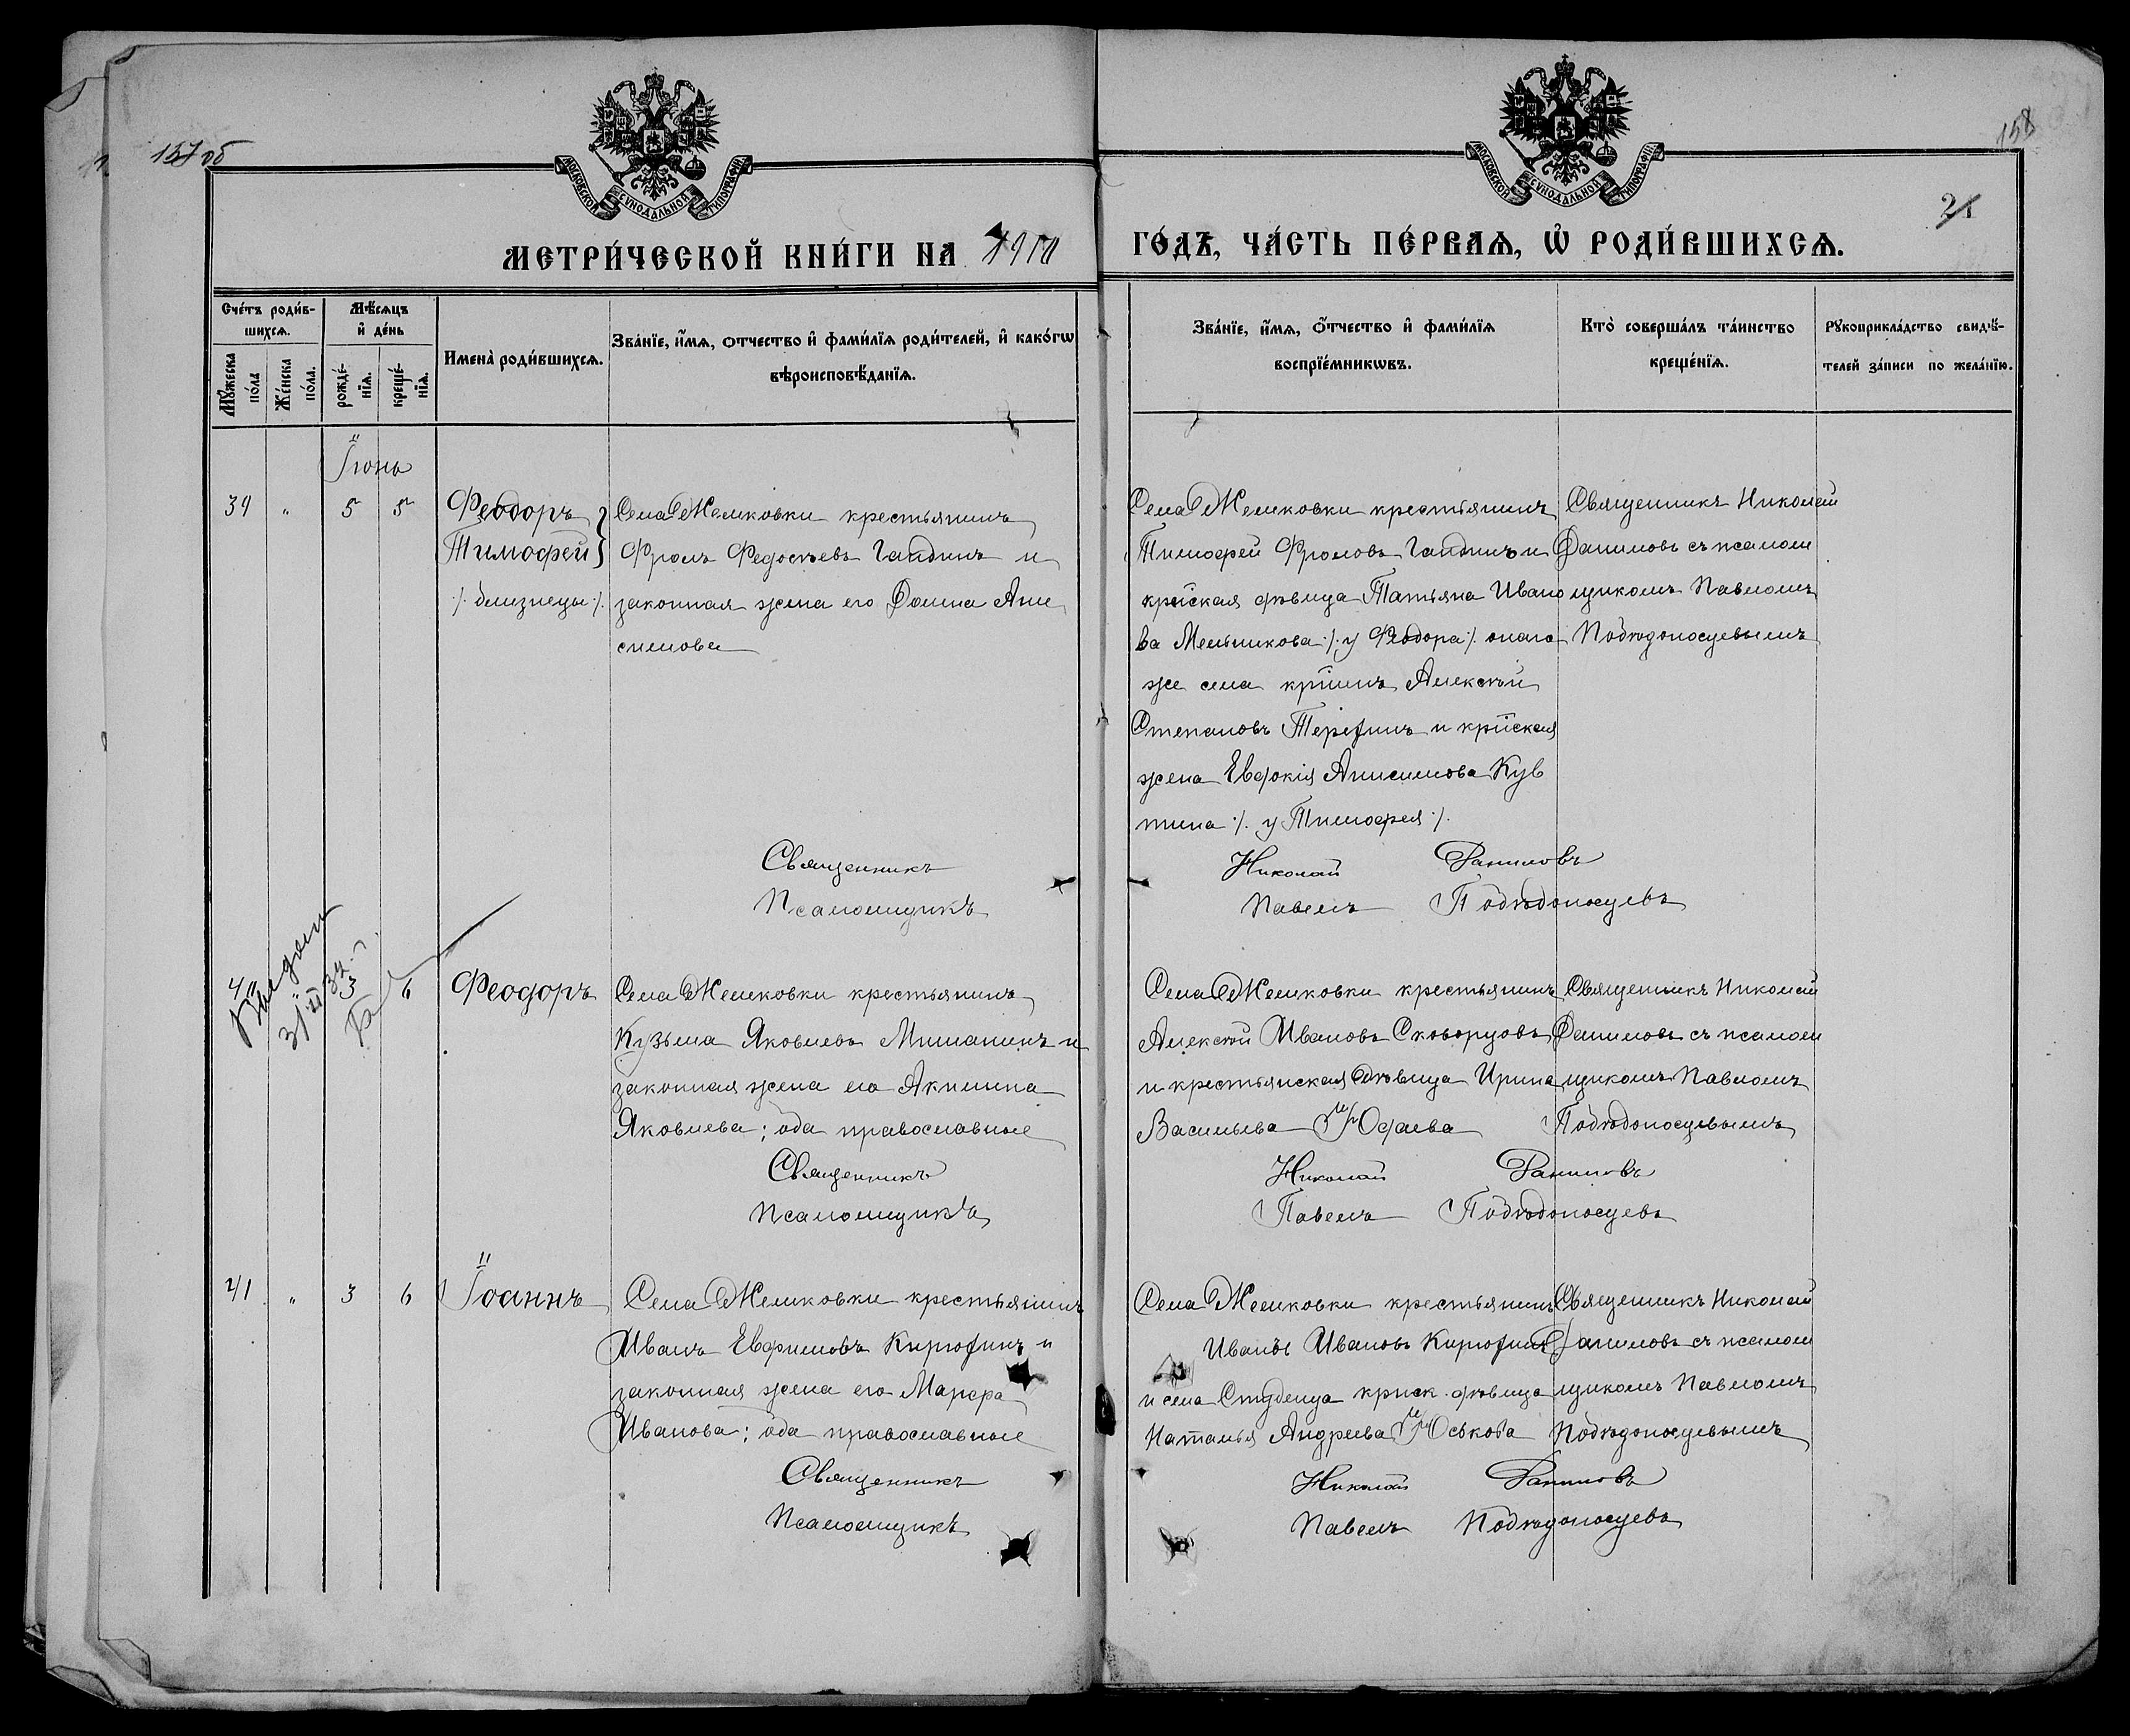 157 об
158
21
МОСКОВСКОЙ СѴНОДАЛЬНОЙ ТИПОГРАФІИ
МОСКОВСКОЙ СѴНОДАЛЬНОЙ ТИПОГРАФІИ
МЕТРИ́ЧЕСКОЙ КНИ́ГИ НА 1910 ГО́ДЪ, ЧА́СТЬ ПЕ́РВАѦ, Ѡ҆ РОДИ́ВШИХСѦ.
Сче́тъ роди́в-
шихсѧ.
Мꙋ́жеска по́ла
Же́нска по́ла.
Мѣ́сѧцъ
и҆ де́нь
рожде́-нїѧ.
креще́-нїѧ.
И҆мена̀ роди́вшихсѧ.
Зва́нїе, и҆́мѧ, ѻ҆́тчество и҆ фами́лїѧ роди́телей, и҆ како́гѡ
вѣроисповѣ́данїѧ.
Зва́нїе, и҆́мѧ, ѻ҆́тчество и҆ фами́лїѧ
воспрїе́мникѡвъ.
Кто̀ соверша́лъ та́инство
креще́нїѧ.
Рꙋкоприкла́дство свидѣ́-
телей за́писи по жела́нїю.
Іюнь
39 " 5 5
Феодоръ
Тимофей
/. близнецы /.
Села Жемковки крестьянинъ
Фролъ Федосѣевъ Гандинъ и
законная жена его Домна Ани
симова
Села Жемковки крестьянинъ
Тимофей Фроловъ Гандинъ и
кр̃йская дѣвица Татьяна Ивано
ва Мельникова /. у Феодора /. онаго
же села кр̃нинъ Алексѣй
Степановъ и кр̃йская
жена Евдокія Анисимова
/. у Тимофея /.
Священникъ Николай
Даниловъ съ псалом
щикомъ Павломъ
Побѣдоносцевымъ
Священникъ Николай Даниловъ
Псаломщикъ Павелъ Побѣдоносцевъ
40 " 3 6
Феодоръ
Села Жемковки крестьянинъ
Кузьма Яковлевъ Мишанинъ и
законная жена его Акилина
Яковлева; оба православные
Села Жемковки крестьянинъ
Алексѣй Ивановъ Скворцовъ
и крестьянская дѣвица Ирина
Васильева Юдаева
Священникъ Николай
Даниловъ съ псалом
щикомъ Павломъ
Побѣдоносцевымъ
Священникъ Николай Даниловъ
Псаломщикъ Павелъ Побѣдоносцевъ
41 " 3 6
Іоаннъ
Села Жемковки крестьянинъ
Иванъ Евфимовъ Кирюхинъ и
законная жена его Марфа
Иванова; оба православные
Села Жемковки крестьянинъ
Иванъ Ивановъ Кирюхинъ
и села Студенца крнск. дѣвица
Наталья Андреева Юськова
Священникъ Николай
Даниловъ съ псалом
щикомъ Павломъ
Побѣдоносцевымъ
Священникъ Николай Даниловъ
Псаломщикъ Павелъ Побѣдоносцевъ